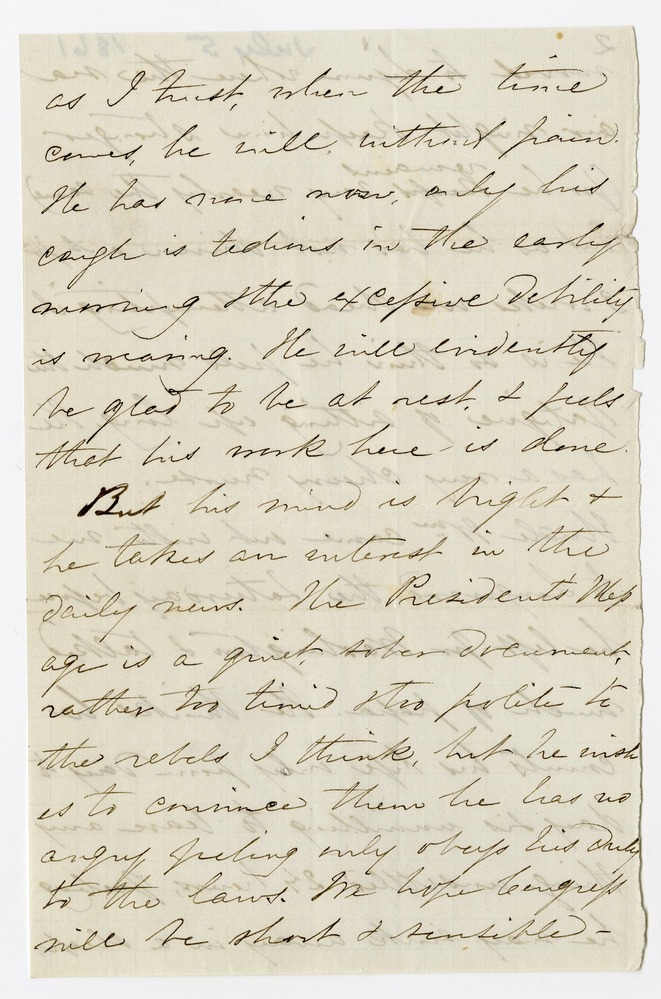 as I trust, when the time
comes, he will, without pain.
He has none now, only his
cough is tedious in the early
morning & the excessive debility
is wearing. He will evidently
be glad to be at rest, & feels
that his work here is done.
But his mind is bright &
he takes an interest in the
daily news. The Presidents Mess
age is a quiet, sober document,
rather too timid & too polite to
the rebels I think, but he wish
es to convince them he has no
angry feeling only obeys his duty
to the laws. We hope Congress
will be short & sensible -